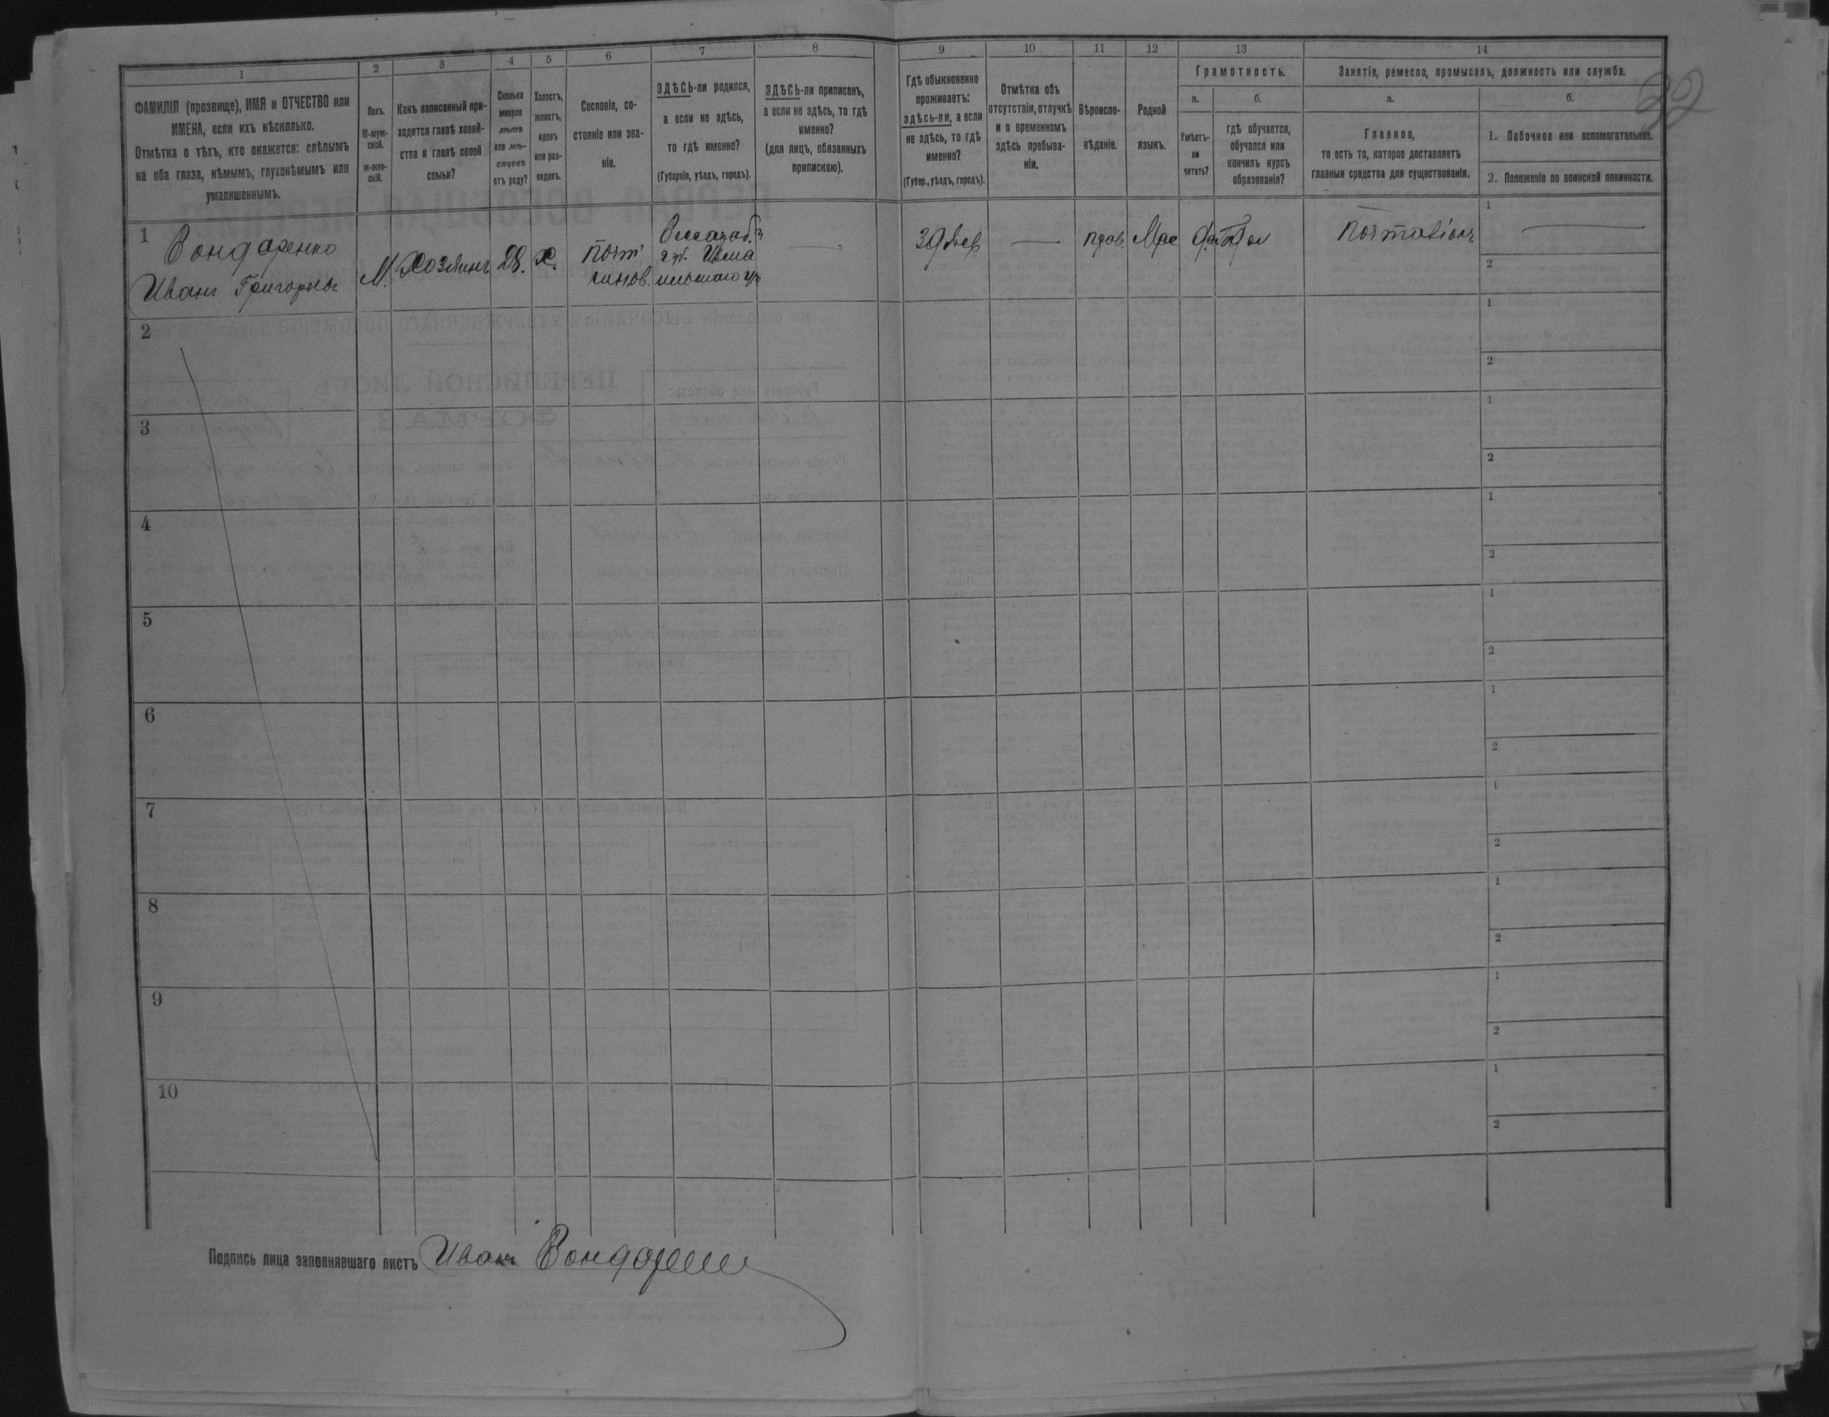 1 2 3 4 5 6 7 8 9 10 11 12 13 14
ФАМИЛІЯ (прозвище), ИМЯ и ОТЧЕСТВО или
ИМЕНА, если ихъ нѣсколько.
Отмѣтка о тѣхъ, кто окажется: слѣпымъ
на оба глаза, нѣмымъ, глухонѣмымъ или
умалишеннымъ.
Полъ.
М-муж-
ской.
Ж-жен-
скій.
Какъ записанный при-
ходится главѣ хозяй-
ства и главѣ своей
семьи?
Сколько
минуло
лѣтъ
или мѣ-
сяцевъ
отъ роду?
Холостъ,
женатъ,
вдовъ
или раз-
веденъ.
Сословіе, со-
стояніе или зва-
ніе.
ЗДѢСЬ-ли родился,
а если не здѣсь,
то гдѣ именно?
(Губернія, уѣздъ, городъ).
ЗДѢСЬ-ли приписанъ,
а если не здѣсь, то гдѣ
именно?
(для лицъ, обязанныхъ
припискою).
Гдѣ обыкновенно
проживаетъ:
здѣсь-ли, а если
не здѣсь, то гдѣ
именно?
(Губер., уѣздъ, городъ).
Отмѣтка объ
отсутствіи, отлучкѣ
и о временномъ
здѣсь пребыва-
ніи.
Вѣроиспо-
вѣданіе.
Родной
языкъ.
Грамотность.
а.
Умѣетъ-
ли
читать?
б.
гдѣ обучается,
обучался или
кончилъ курсъ
образованія?
Занятіе, ремесло, промыселъ, должность или служба.
а.
Главное,
то есть то, которое доставляетъ
главныя средства для существованія.
б.
1. Побочное или вспомогательное.
2. Положеніе по воинской повинности.
1
Бондаренко
Иванъ Григорьев
М. Хозяинъ 28. Х.
Бессараб.
гу. Изма
ильскаго у
прав.
1
2
2
1
2
3
1
2
4
1
2
5
1
2
6
1
2
7
1
2
8
1
2
9
1
2
10
1
2
Подпись лица заполнявшаго листъ Иван Бондаренко